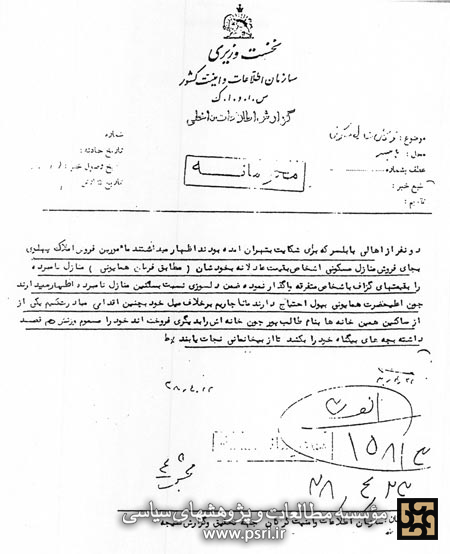 نخست وزیری
سازمان اطلاعات و امنیت کشور
س.ا.و.ا.ک
گزارش اطلاعات داخلی
شماره
موضوع :
تاریخ حادثه :
محل : بابلسر
تاریخ وصول خبر :
عطف بشماره
تاریخ گزارش
منبع خبر :
تقویم :
محرمانه
دو نفر از اهالی بابلسر که برای شکایت بتهران آمده بودند اظهار میداشتند مامورین فروش املاک پهلوی
بجای فروش منازل مسکونی اشخاص بقیمت عادلانه بخودشان ( مطابق فرمان همایونی ) منازل نامبرده
را بقیمتهای گزاف باشخاص متفرقه واگذار نموده ضمن دلسوزی نسبت بساکنین منازل نامبرده اظهار میدارند
چون اعلیحضرت همایونی بپول احتیاج دارند ما ناچاریم برخلاف میل خود بچنین اقدامی مبادرت کنیم یکی از
ساکنین همین خانه ها بنام طالب پور چون خانه اش را بدیگری فروخته اند خود را مسموم و زنش هم قصد
داشته بچه های بیگناه خود را بکشد تا از بیخانمانی نجات یابند
۱۵۸۱۳
۳۸٫۴٫۲۳
مؤسسه مطالعات و پژوهشهای سیاسی
www.psri.ir